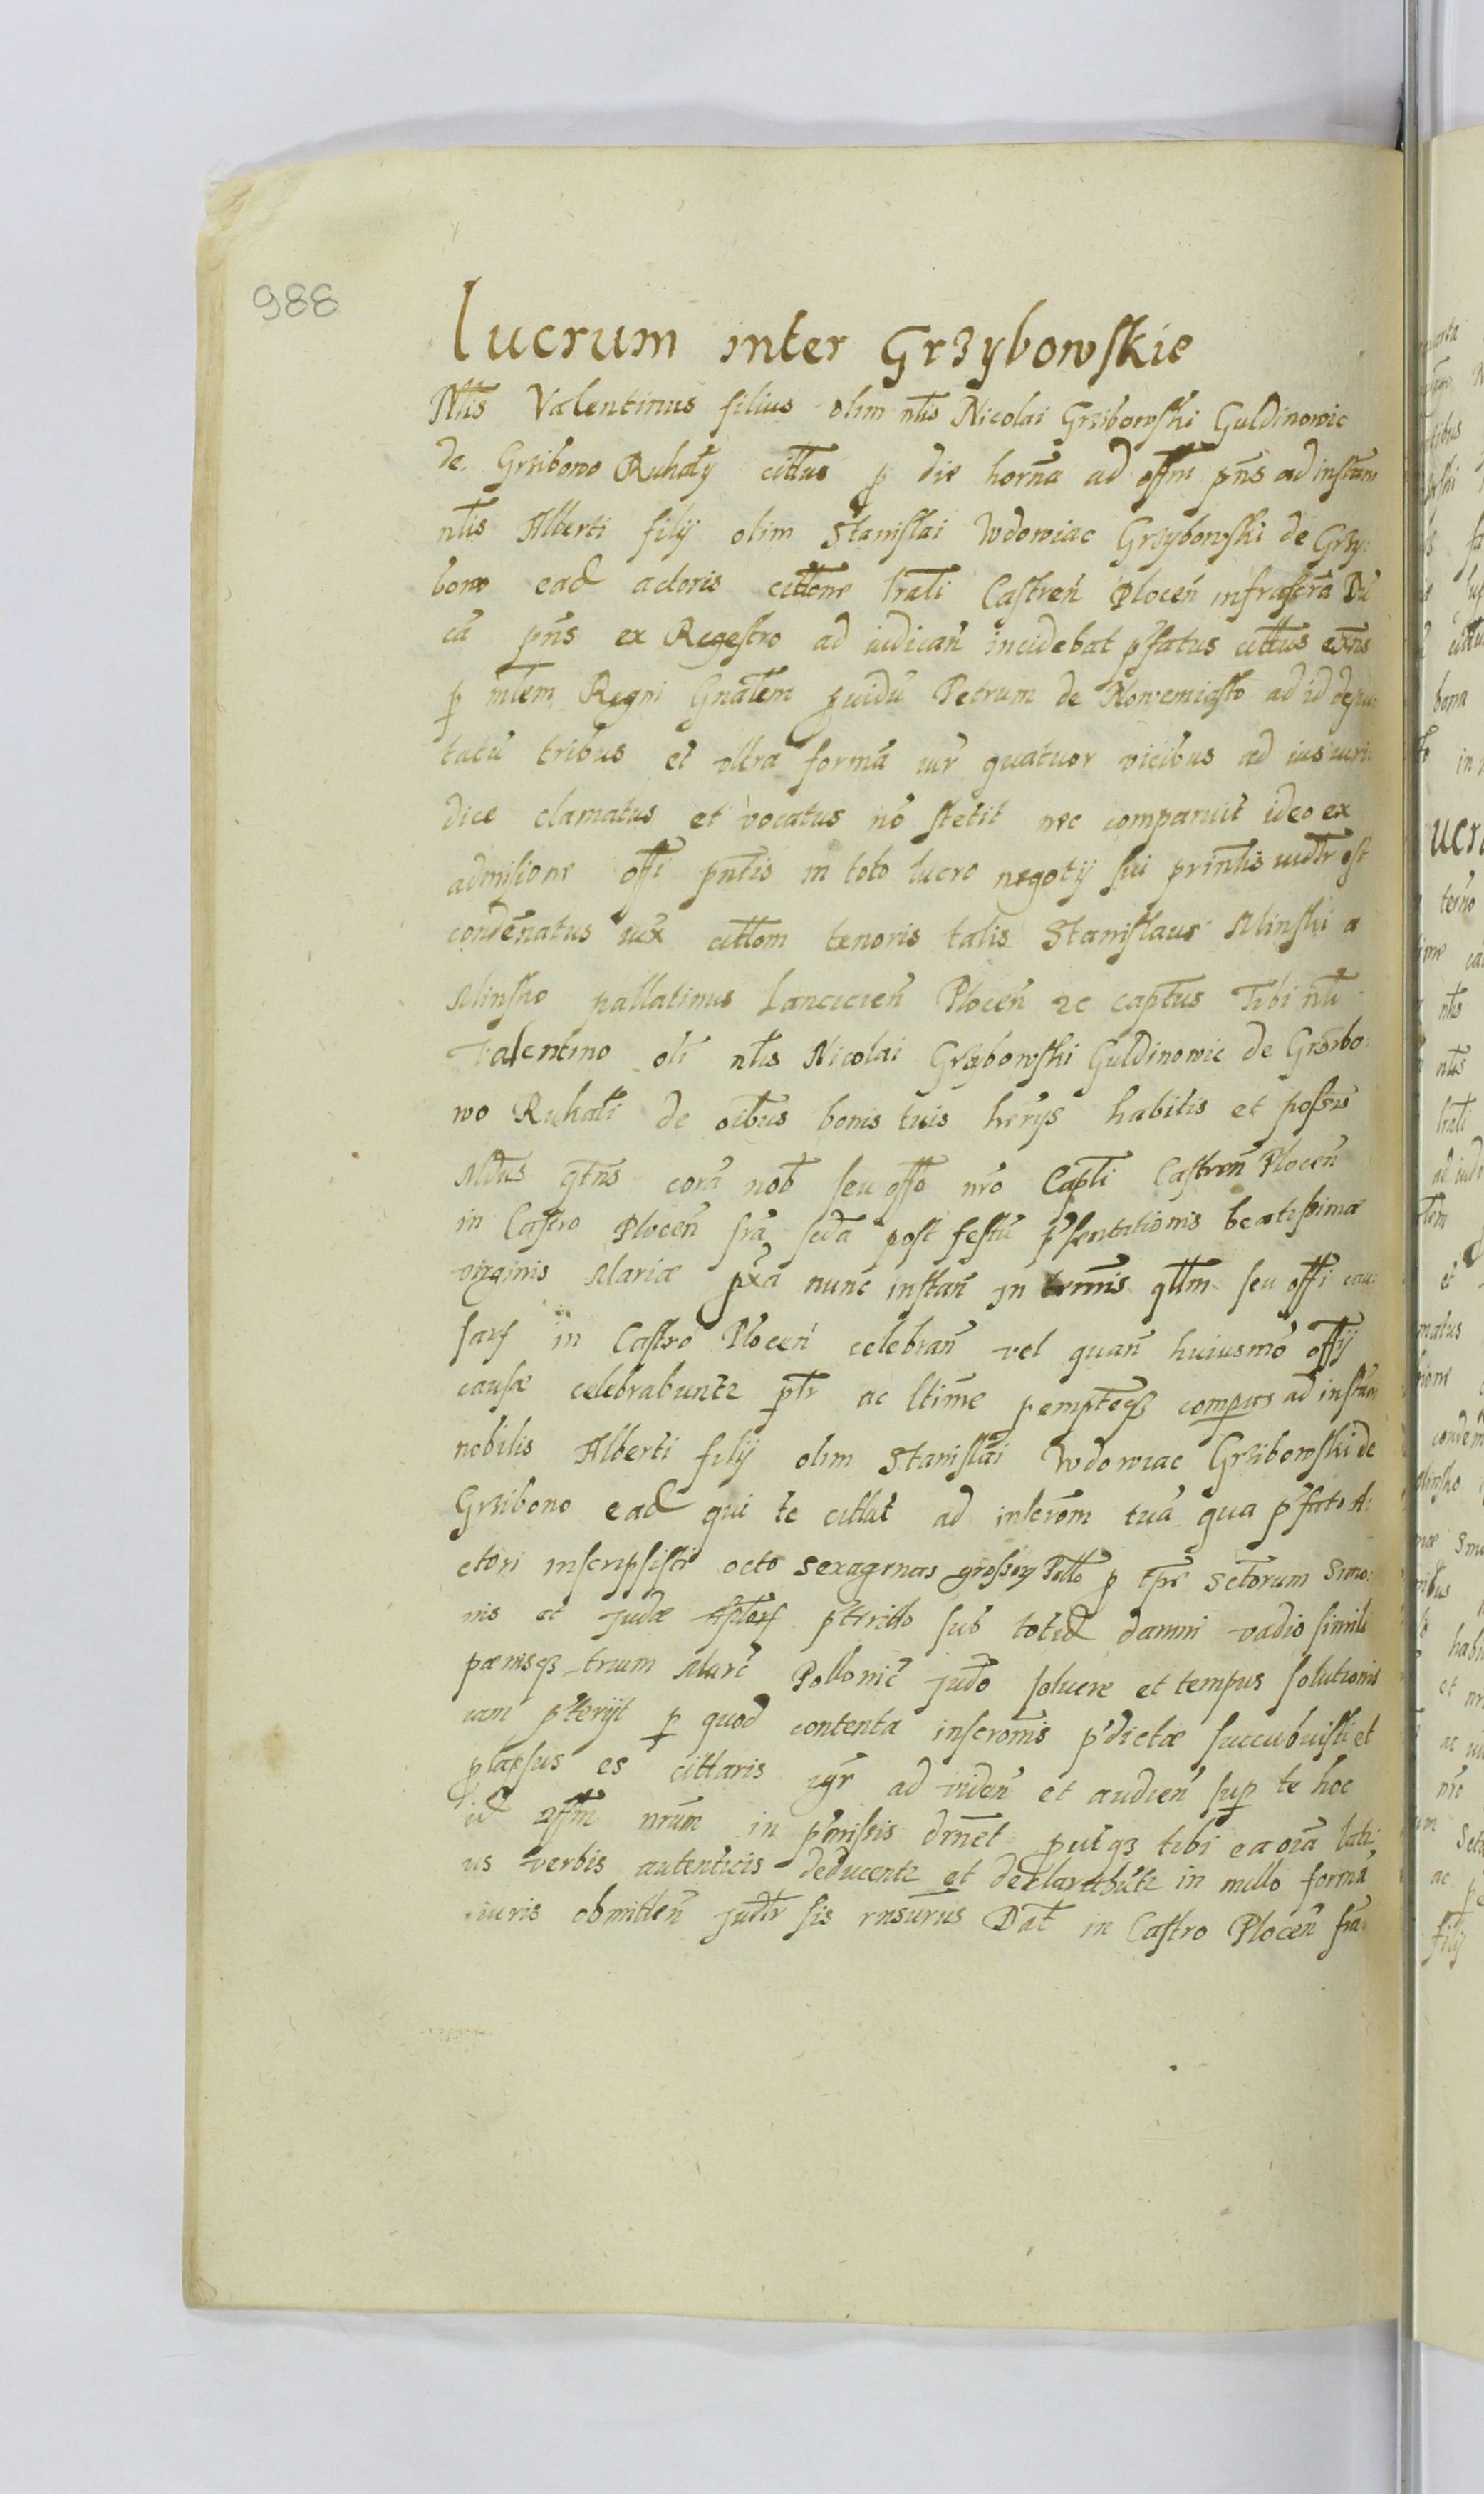 988
Lucrum inter Grzybowskie
Nłis Valentinus filius olim nłis Nicolai Grzibowski Guldinowic
de Grzibowo Ruhały cittus p die horña ad offm pñs ad instam
nłis Alberti filij olim Stanislai Wdowiac Grzybowski de Grzy:
bowo ead actoris cittone łrali Castreñ Ploceñ infrascra Dū
cā pñs ex Regestro ad iudicañ incidebat p'fatus cittus
p młem Regni Gnałem Petrum de Nowemiasto ad id depu:
tatū tribus et vltra formā iur quatuor vicibus ad ius iuri:
dice clamatus et vocatus nō stetit nec comparuit ideo ex
admisione offi pntis in toto lucro negotij sui prinłis iudłr est
condēnatus iux cittom tenoris talis Stanislaus Minski a
Minsko pallatinus Lancicieñ Ploceñ 2c captus Tibi nłi
Valentino oli nłis Nicolai Grzybowski Guldinowic de Grzibo:
wo Ruhałi de oibus bonis tuis herijs habitis et possis
Mdus qtns corā nob seu offo nro Capłi Castreñ Ploceñ
in Castro Ploceñ fra scda post festū p'sentationis beatissimæ
virginis Mariæ pxa nunc instañ in trminis qłlm seu offi cau:
sarz in Castro Ploceñ celebrañ vel quañ huiusmo offij
causæ celebrabuntz płr ac łtime pempteq3 compas ad instam
nobilis Alberti filij olim Stanislai Wdowiac Grzibowski de
Grzibono ead qui te cittat ad inscrom tuā qua p'fato A:
ctori inscripsisti octo sexagenas grossorz Pollo p tpre Sctorum Simo:
nis et Judæ Apłorz p'terito sub totid damni vadio simili
pænisq3 trium Marc Pollonic judo soluere et tempus solutionis
iam p'terijt p quod contenta inscromis p'dictæ succubuisti et
plapsus es cittaris igr ad videñ et audieñ sup te hoc
id offm nrum in p'missis drnet put q3 tibi ea oia lati:
us verbis autenticis deducentz et declarabūtz in nullo formā
iuris obmitteñ judłr sis rnsurus Dat in Castro Ploceñ fra